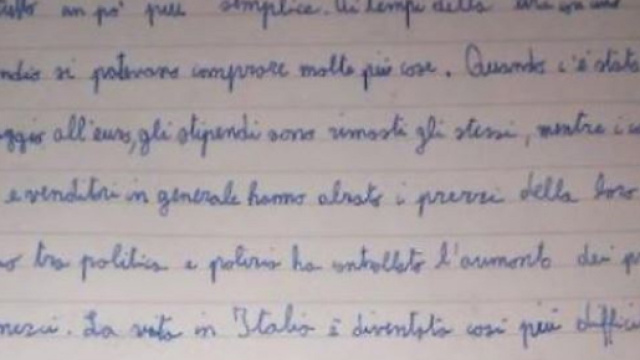 un po' più semplice. Ai tempi della lira con uno
ndio si potevano comprare molte più cose. Quando c'è stato
ggio all'euro, gli stipendi sono rimasti gli stessi, mentre i
e venditori in generale hanno alzato i prezzi della loro
tra politica e polizia ha controllato l'aumento dei
. La vita in Italia è diventata così più diffici